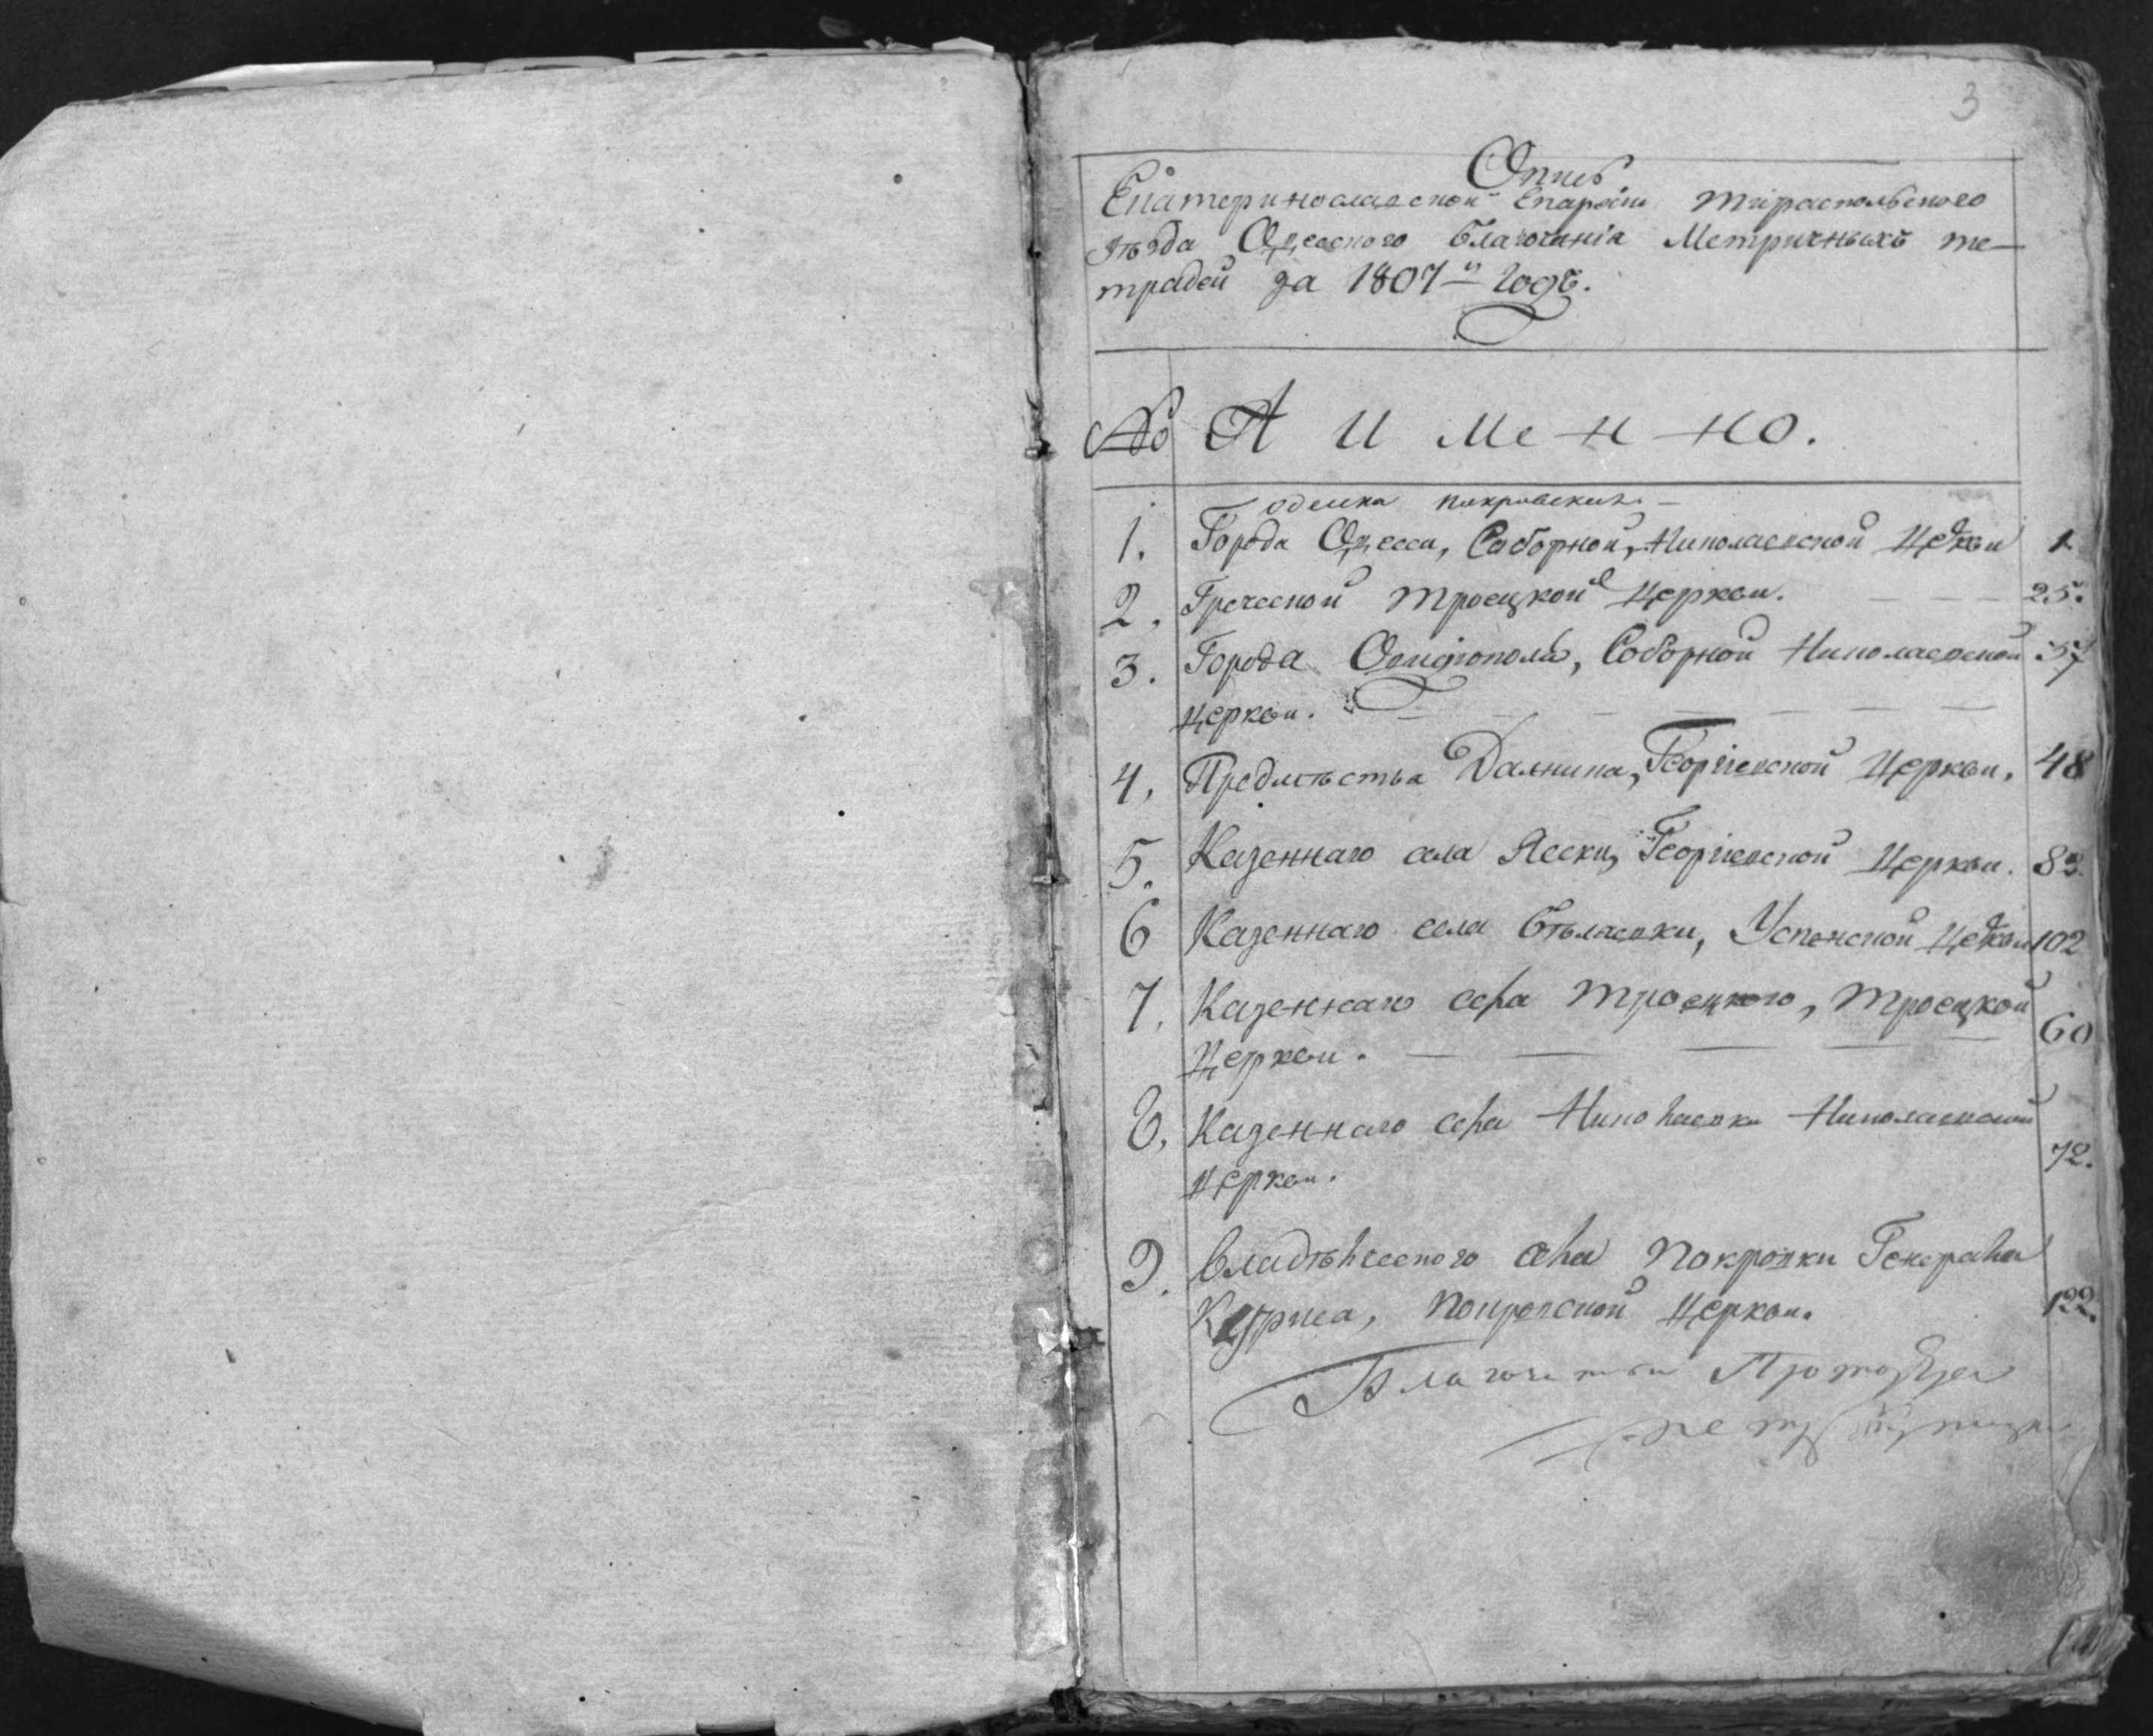 3
Опись
Екатеринославской Епархіи Тираспольского
уѣзда Одесского благочинія Метричныхъ те-
традей за 1807й годъ.
№ А И МЕННО.
1. Города Одессы, Соборной, Николаевской Церкви 1
2. Греческой Троецкой Церкви. 25.
3. Города Овидіополя, Соборной Николаевской 37
Церкви.
4. Предмѣстья Далника, Георгіевской Церкви. 48
5. Казеннаго села Яски, Георгіевской Церкви. 83
6 Казеннаго села Бѣляевки, Успенской Церкви 102
7. Казеннаго села Троецкого, Троецкой 60
Церкви.
8. Казеннаго села Николаевки Николаевской 72.
Церкви.
9. Владѣльческого села Покровки Генерала
Куриса, Покровской Церкви. 122.
Благочинный Протоіерей